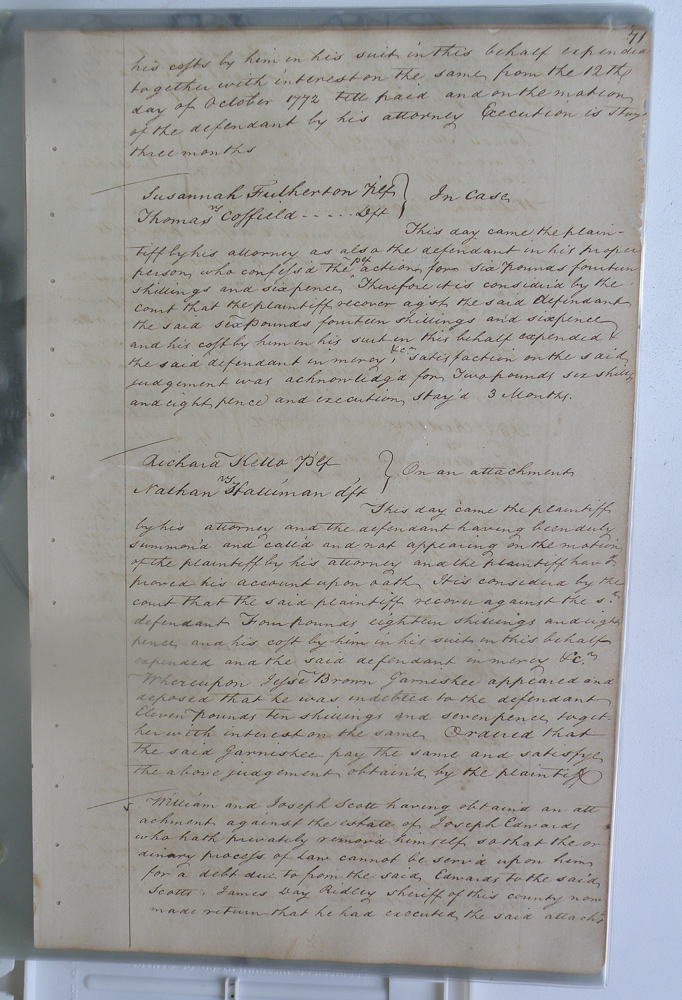 71
his costs by him in his suit in this behalf expended
together with interest on the same from the 12th
day of October 1772 till paid and on the motion
of the defendant by his attorney Execution is stay
three months
Susannah Fulherton Plf } In Case
vs
Thomas Coffield ..... Dft
This day came the plain-
tiff by his attorney as also the defendant in his proper
person, who confess'd the plfs action for six Pounds fourteen
shillings and sixpence, Therefore it is consider'd by the
court that the plaintiff recover agst the said Defendant
the said six Pounds fourteen shillings and sixpence
and his cost by him in his suit in this behalf expended &
the said defendant in mercy, &c satisfaction on the said
judgement was acknowledg'd for Two pounds six shills
and eight pence and execution stay'd 3 Months.
Richard Kello Plf } On an attachment
vs
Nathan Halliman dft
This day came the plaintiff
by his attorney and the defendant having been duly
summon'd and call'd and not appearing on the motion
of the plaintiff by his attorney and the plaintiff having
proved his account upon oath, It is consider'd by the
court that the said plaintiff recover against the sd
defendant Four pounds eighteen shillings and eight
pence and his cost by him in his suit in this behalf
expended and the said defendant in mercy &c
Whereupon Jesse Brown Garneshee appeared and
deposed that he was indebted to the defendant
Eleven pounds ten shillings and seven pence, toget
her with interest on the same Ordered that
the said Garnishee pay the same and satisfye
the above judgement obtain'd by the plaintiff
William and Joseph Scott having obtain'd an att
achment against the estate of Joseph Edwards
who hath privately remov'd himself so that the or
dinary process of Law cannot be serv'd upon him
for a debt due to from the said Edwards to the said
Scotts, James Day Ridley sheriff of this county now
made return that he had executed the said attacht